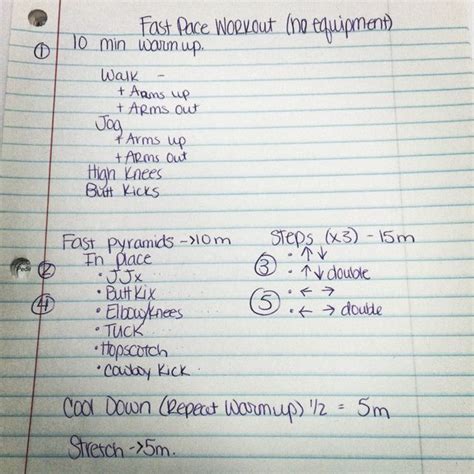 Fast Pace Workout (no equipment)
① 10 min warm up.
Walk -
+ Arms up
+ Arms out
Jog
+ Arms up
+ Arms out
High Knees
Butt Kicks
Fast pyramids -> 10m
In Place
②
④
• JJx
• Butt Kix
• Elbow/Knees
• Tuck
• Hopscotch
• Cowboy Kick
Steps (x3) - 15m
③ • ↑↓
• ↑↓ double
⑤ • ← →
• ← → double
Cool Down (Repeat Warmup) 1/2 = 5m
Stretch -> 5m.